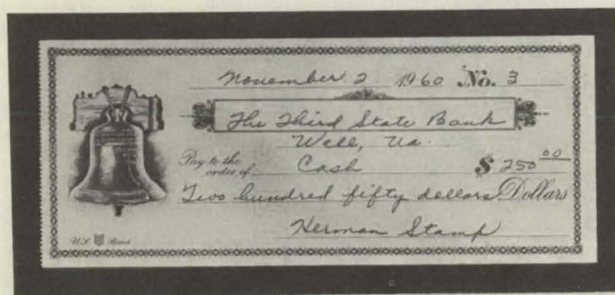 November 2 1960 No. 3
The Third State Bank
Wall, Va.
Pay to the
order of Cash $ 250 00
Two hundred fifty dollars Dollars
Herman Stamp